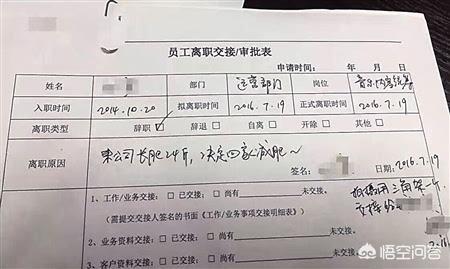 员工离职交接/审批表
申请时间： 年 月 日
姓名 部门 运营部门 岗位 音乐
入职时间 2014.10.20 拟离职时间 2016.7.19 正式离职时间 2016.7.19
离职类型 辞职 ☑ 辞退 □ 自离 □ 开除 □ 其他 □
离职原因 来公司长肥24斤，决定回家减肥～
签名： 日期：2016.7.19
1、工作/业务交接：□ 已交接；□ 尚有 未交接。
（需提交交接人签名的书面《工作/业务事项交接明细表》）
2、业务资料交接：□ 已交接；□ 尚有 未交接。
3、客户资料交接：□ 已交接；□ 尚有 未交接。
悟空问答